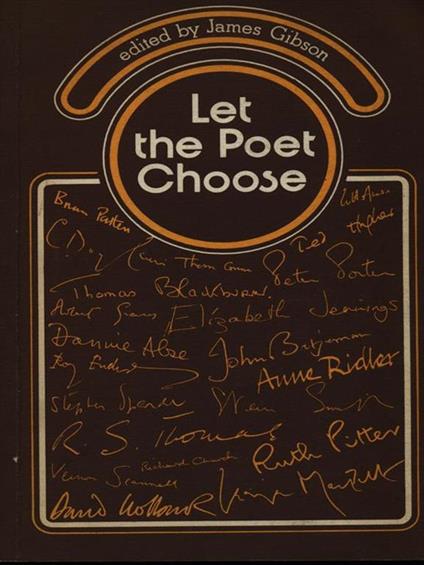 edited by James Gibson
Let
the Poet
Choose
Brian Patten
Ted Hughes
Thom Gunn
Peter Porter
Thomas Blackburn
Elizabeth Jennings
Dannie Abse
John Betjeman
Roy Fuller
Anne Ridler
Stephen Spender
R. S. Thomas
Ruth Pitter
Richard Church
Vernon Scannell
David Holbrook